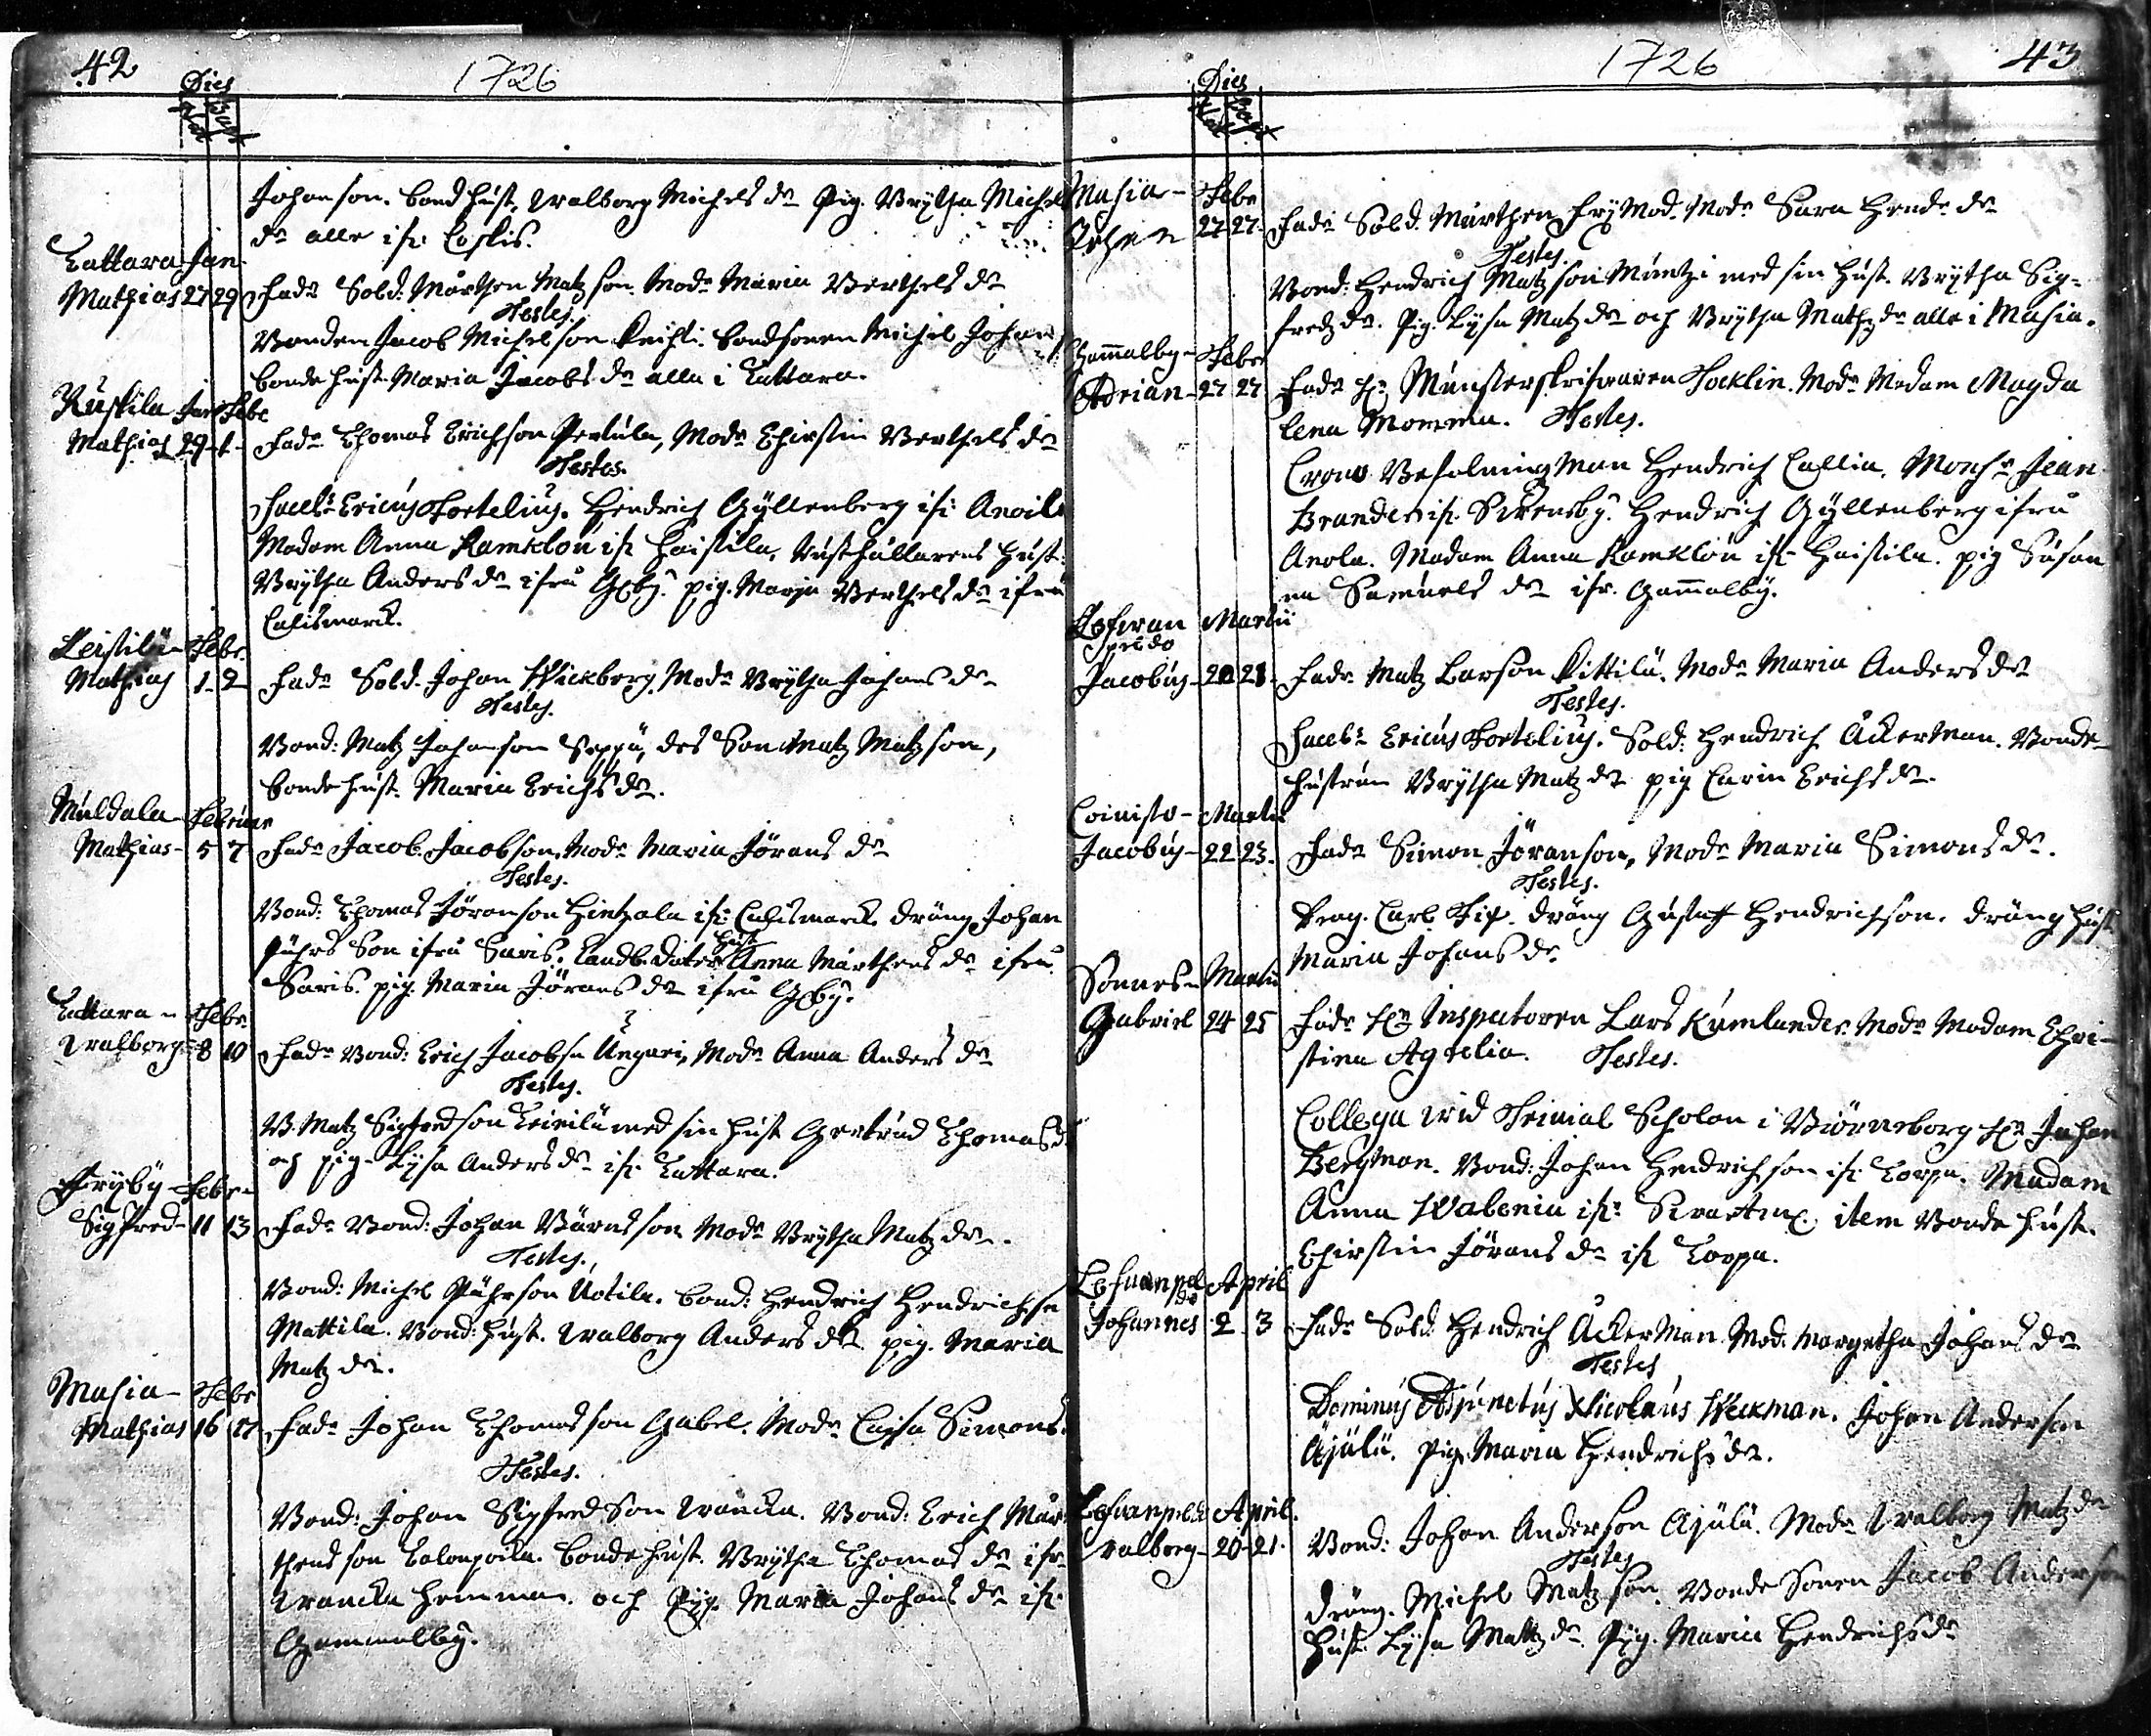 42
1726
Dies
Nat Bapt
Johanson. bond hust. Walborg Michels dr Pig. Brytha Michels
dr alle ifr.
Lattara Jan.
Mathias 27 29 Fadr Sold: Mårthen Matzson. Modr Maria Berthels dr
Testes.
Bonden Jacob Michelson bondsonen Michel Johans
bonde hust. Maria Jacobs dr alla i Lattara.
Ruskila Jan Febr
Mathias 29 1 Fadr Thomas Erichson Pertula, Modr Chirstin Berthels dr
Testes.
Sacells Ericus Foetelius. Hendrich Gyllenberg ifr. Anoila
Madam Anna Ramklou ifr Haistila, Rusthållarens hust:
Brytha Anders dr ifrå pig. Marja Berthels dr ifrå
Cahismarck.
Leistilä Febr.
Mathias 1 2 Fadr Sold. Johan Wickberg Modr Brytha Johans dr
Testes.
Bond: Matz Johanson Seppä, des Son Matz Matzson,
bonde hust. Maria Erichs dr.
Muldala Februar
Mathias 5 7 Fadr Jacob Jacobson, Modr Maria Jörans dr
Testes.
Bond: Thomas Jöranson Hintzala ifr: Cahismarck dräng Johan
Pährs Son ifrå Saris. hust Anna Mårthens dr ifrå
Saris. pig. Maria Jörans dr ifrå
Lattara Febr.
Walborg 8 10 Fadr Bond: Erich Jacobsn Ungari, Modr Anna Anders dr
Testes.
B. Matz Sigfredson med sin hust Gertrud Thomas dr
och pig. Lysa Anders dr ifr. Lattara.
Fryby Febr
Sigfred 11 13 Fadr Bond: Johan Bärnsson Modr Brytha Matz dr.
Testes.
Bond: Michel Pährson Uotila. bond: Hendrich Hendrichsn
Mattila. Bond: hust. Walborg Anders dr pig. Maria
Matz dr.
Masia Febr
Mathias 16 17 Fadr Johan Thomasson Gabel. Modr Caisa Simons
Testes.
Bond: Johan Sigfredson Krancka. Bond: Erich Mår
thens son bonde hust. Brytha Thomas dr ifr
Krancka hemman. och Pig. Maria Johans dr ifr.
Gammalby.
1726
43
Dies
Nat Bapt
Masia Febr
27 27 Fadr Sold. Mårthen Frymod. Modr Sara Hendr dr
Testes.
Bond: Hendrich Matzson Müntzi med sin hust. Brytha Sig-
fredz dr. Pig. Lysa Matz dr och Brytha Mathz dr alle i Masia.
Gammalby Febr
Adrian 27 27 Fadr Hr Munsterskrifwaren Tocklin. Modr Madam Magda
lena Momma. Testes.
Crono Befalningzman Hendrich Callia. Monsr Jean
Brander ifr. Hendrich Gyllenberg ifrå
Anola. Madam Anna Ramklou ifr Haistila. pig Susan
na Samuels dr ifr. Gammalby.
Lefwan Martii
peldo
Jacobus 20 21 Fadr Matz Larson Kittilä. Modr Maria Anders dr
Testes.
Sacells Ericus Foetelius. Sold: Hendrich Åckerman. Bonde
hustrun Brytha Matz dr pig Carin Erichs dr
Coinisto Martii
Jacobus 22 23. Fadr Simon Jöranson, Modr Maria Simons dr.
Testes.
Drag. Carl dräng Gustaff Hendrichson. dräng hust
Maria Johans dr
Sonnäs Martii
Gabriel 24 25 Fadr Hr Inspectoren Lars Kumlander Modr Madam Chri-
stina Agrelia. Testes.
Collega wid Trivial Scholan i Biörneborg Hr Johan
Bergman. Bond: Johan Hendrichson ifr Torpa. Madam
Anna Walenia ifr. item Bonde hust.
Chirstin Jörans dr ifr Torpa.
Lefwanpel April
do
Johannes 2 3 Fadr Sold. Hendrich Åckerman. Mod. Margetha Johans dr
Testes
Dominus Adjunctus Nicolaus Weckman. Johan Anderson
Äjälä. Pig. Maria Hendrichs dr.
Lefwanpeldo April.
Walborg 20 21. Bond: Johan Anderson Äjälä. Modr Walborg Matz dr
Testes
dräng. Michel Matzson. Bonde Sonen Jacob Anderson
hust. Lysa Matz dr. Pig. Maria Hendrichs dr